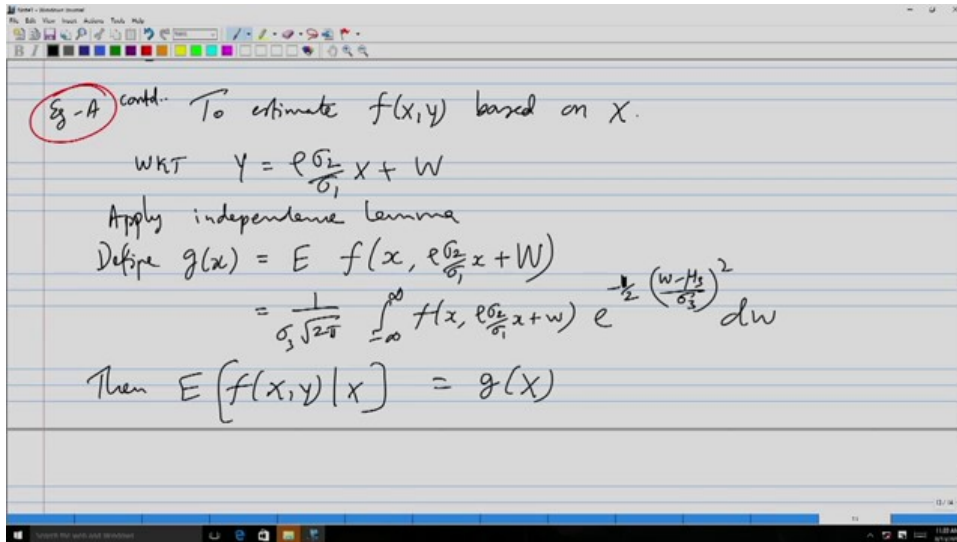 File Edit View Insert Actions Tools Help
B I
Eg-A contd.. To estimate f(X,Y) based on X.
WKT Y = ρ σ₂/σ₁ X + W
Apply independence lemma
Define g(x) = E f(x, ρ σ₂/σ₁ x + W)
= 1/(σ₃√2π) ∫_{-∞}^{∞} f(x, ρ σ₂/σ₁ x + w) e^{-1/2 ((w-μ₃)/σ₃)²} dw
Then E[f(X,Y)|X] = g(X)